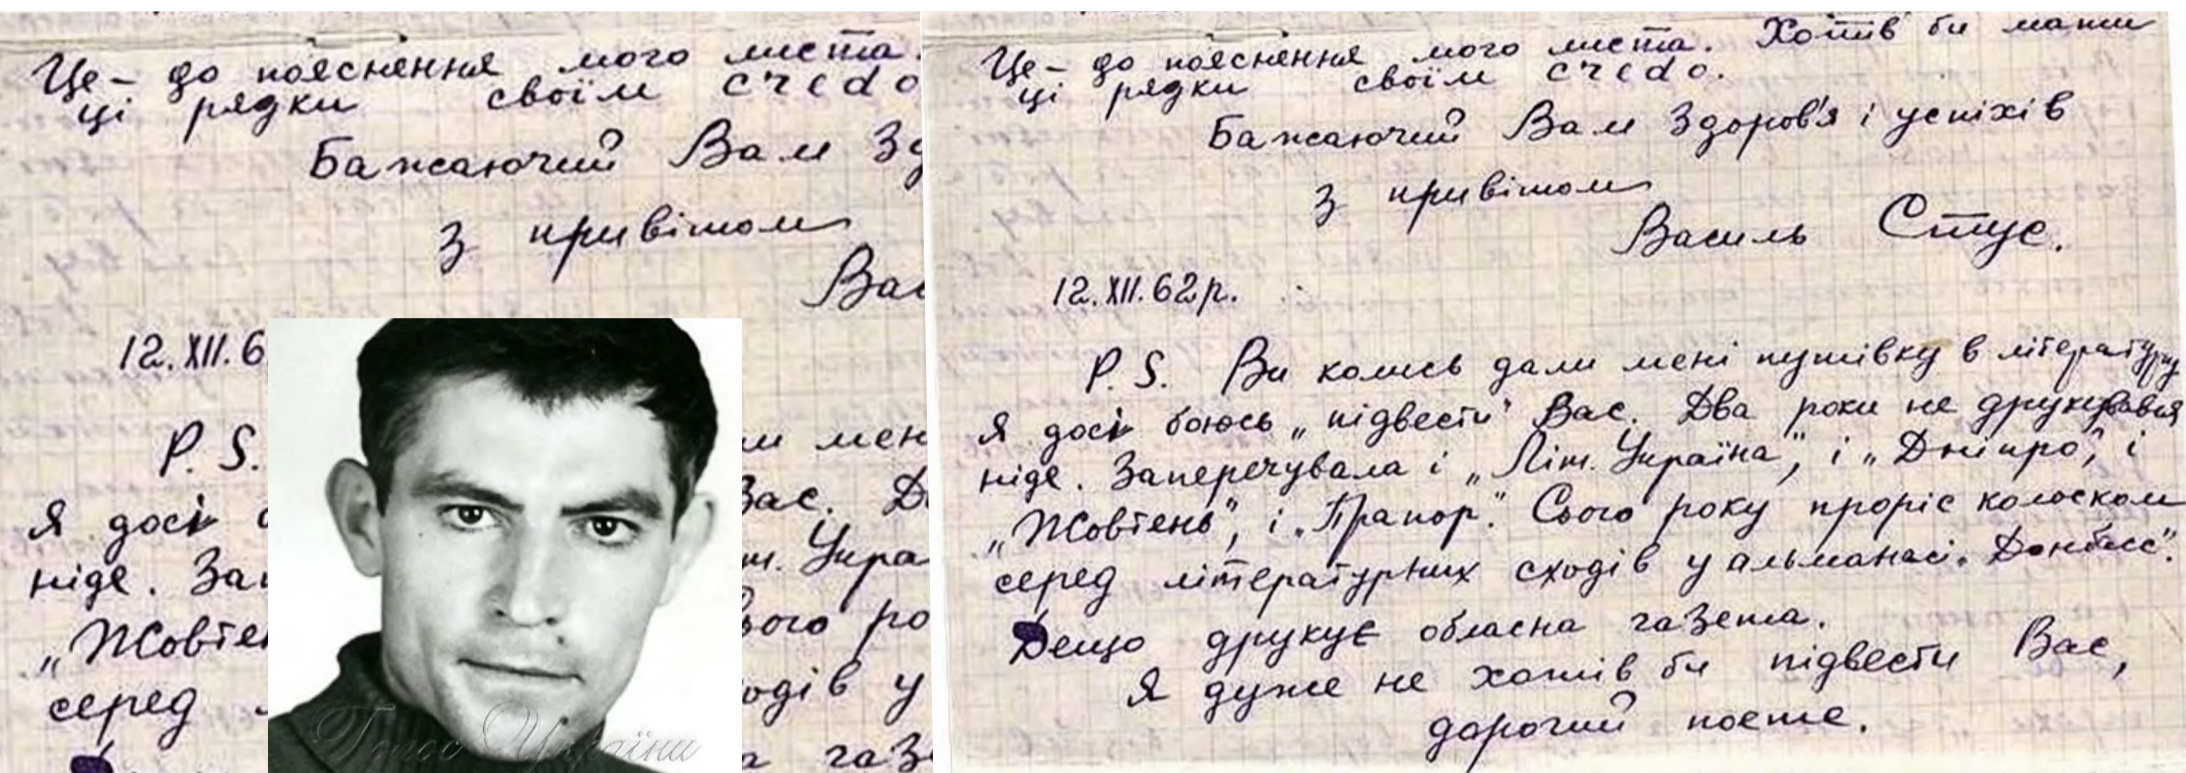 Це – до пояснення мого листа.
ці рядки своїм credo
Бажаючий Вам Зд
З привітом
Вас
12.XII.6
P.S.
и мен
Я досі
Вас. Дв
ніде. Зап
т. Укра
„Жовтен
ього ро
серед
одів у
а газ
Голос України
Це – до пояснення мого листа. Хотів би мати
ці рядки своїм credo.
Бажаючий Вам Здоров'я і успіхів
З привітом
Василь Стус.
12.XII.62р.
P.S. Ви колись дали мені путівку в літературу
Я досі боюсь „підвести" Вас. Два роки не друкувався
ніде. Заперечувала і „Літ. Україна", і „Дніпро", і
„Жовтень", і „Прапор". Сього року проріс колоском
серед літературних сходів у альманасі „Донбасс".
Дещо друкує обласна газета.
Я дуже не хотів би підвести Вас,
дорогий поете.